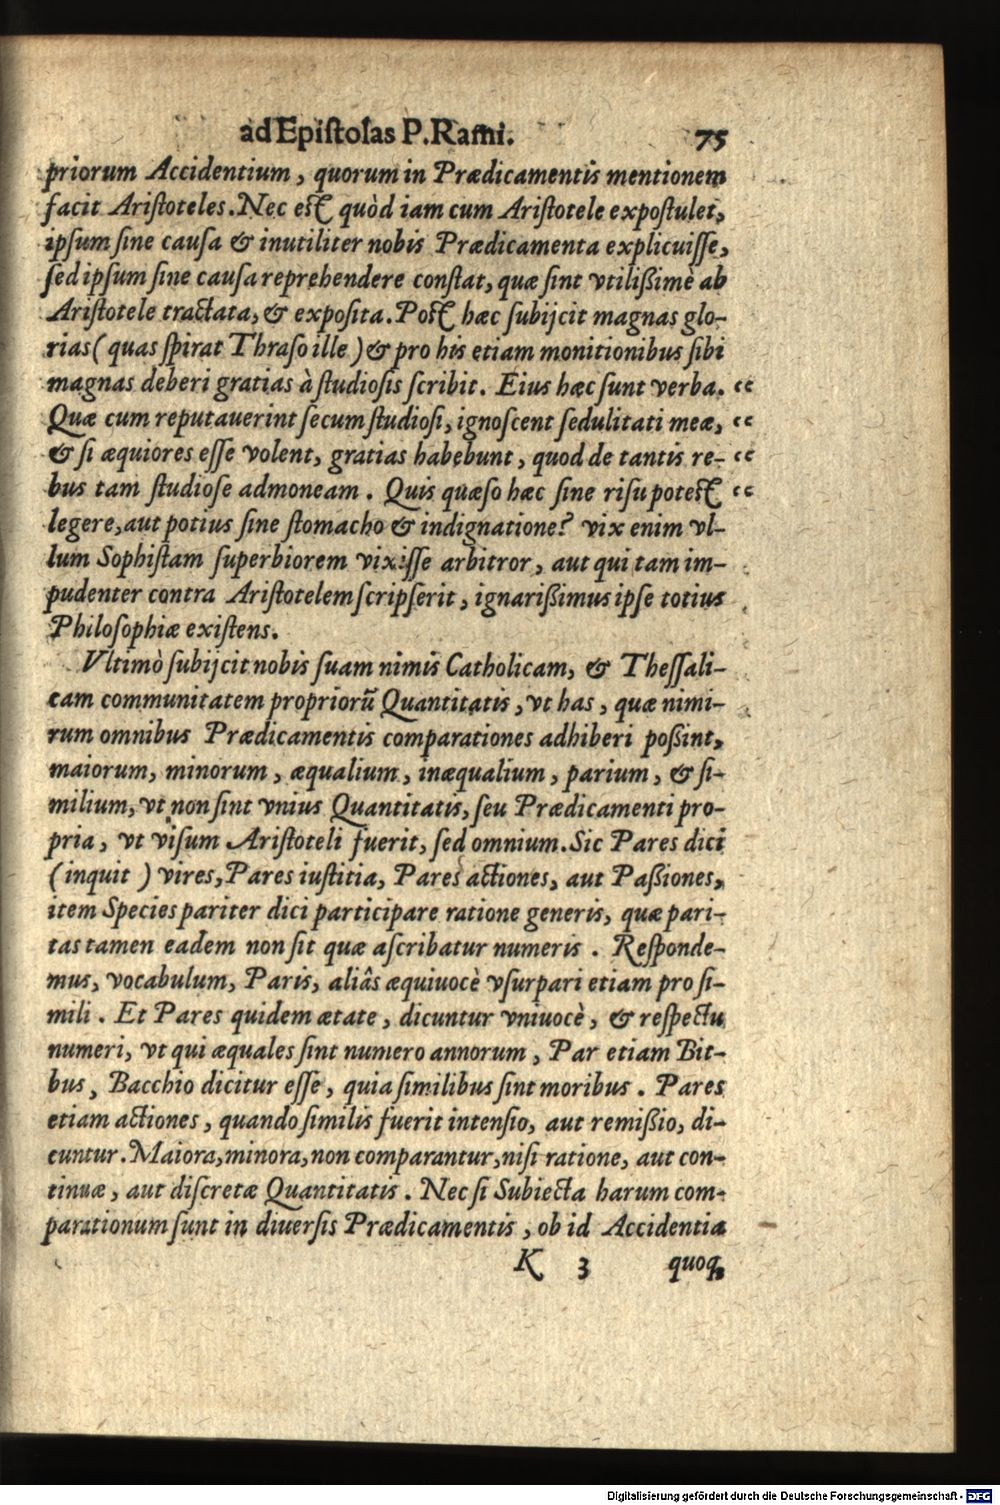 ad Epiſtolas P. Rami. 75
priorum Accidentium, quorum in Prædicamentis mentionem
facit Ariſtoteles. Nec eſt quòd iam cum Ariſtotele expoſtulet,
ipſum ſine cauſa & inutiliter nobis Prædicamenta explicuiſſe,
ſed ipſum ſine cauſa reprehendere conſtat, quæ ſint vtilißimè ab
Ariſtotele tractata, & expoſita. Poſt hæc ſubijcit magnas glo-
rias (quas ſpirat Thraſo ille) & pro his etiam monitionibus ſibi
magnas deberi gratias à ſtudioſis ſcribit. Eius hæc ſunt verba. “
Quæ cum reputauerint ſecum ſtudioſi, ignoſcent ſedulitati meæ, “
& ſi æquiores eſſe volent, gratias habebunt, quod de tantis re- “
bus tam ſtudioſe admoneam. Quis quæſo hæc ſine riſu poteſt “
legere, aut potius ſine ſtomacho & indignatione? vix enim vl-
lum Sophiſtam ſuperbiorem vixiſſe arbitror, aut qui tam im-
pudenter contra Ariſtotelem ſcripſerit, ignarißimus ipſe totius
Philoſophiæ exiſtens.
Vltimò ſubijcit nobis ſuam nimis Catholicam, & Theſſali-
cam communitatem propriorū Quantitatis, vt has, quæ nimi-
rum omnibus Prædicamentis comparationes adhiberi poßint,
maiorum, minorum, æqualium, inæqualium, parium, & ſi-
milium, vt non ſint vnius Quantitatis, ſeu Prædicamenti pro-
pria, vt viſum Ariſtoteli fuerit, ſed omnium. Sic Pares dici
(inquit) vires, Pares iuſtitia, Pares actiones, aut Paßiones,
item Species pariter dici participare ratione generis, quæ pari-
tas tamen eadem non ſit quæ aſcribatur numeris. Reſponde-
mus, vocabulum, Paris, aliâs æquiuocè vſurpari etiam pro ſi-
mili. Et Pares quidem ætate, dicuntur vniuocè, & reſpectu
numeri, vt qui æquales ſint numero annorum, Par etiam Bit-
bus, Bacchio dicitur eſſe, quia ſimilibus ſint moribus. Pares
etiam actiones, quando ſimilis fuerit intenſio, aut remißio, di-
cuntur. Maiora, minora, non comparantur, niſi ratione, aut con-
tinuæ, aut diſcretæ Quantitatis. Nec ſi Subiecta harum com-
parationum ſunt in diuerſis Prædicamentis, ob id Accidentia
K 3 quoq;
Digitalisierung gefördert durch die Deutsche Forschungsgemeinschaft - DFG